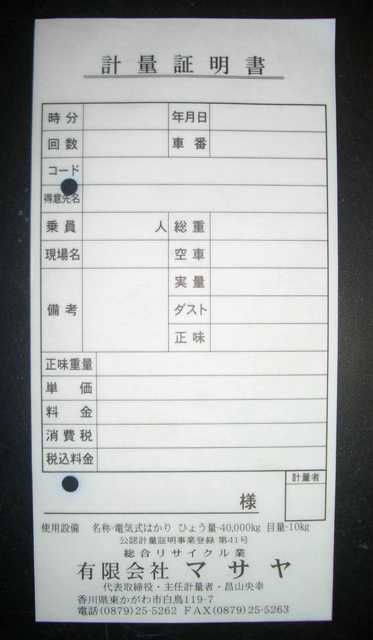 計量証明書
時分 年月日
回数 車番
コード
得意先名
乗員 人 総重
現場名 空車
実量
備考 ダスト
正味
正味重量
単価
料金
消費税
税込料金
計量者
様
使用設備 名称・電気式はかり ひょう量・40,000kg 目量・10kg
公認計量証明事業登録 第41号
総合リサイクル業
有限会社 マサヤ
代表取締役・主任計量者・畠山央幸
香川県東かがわ市白鳥119-7
電話(0879)25-5262 FAX(0879)25-5263